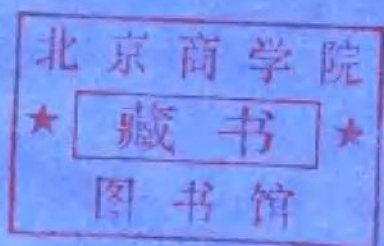 北京商学院
★ 藏书 ★
图书馆